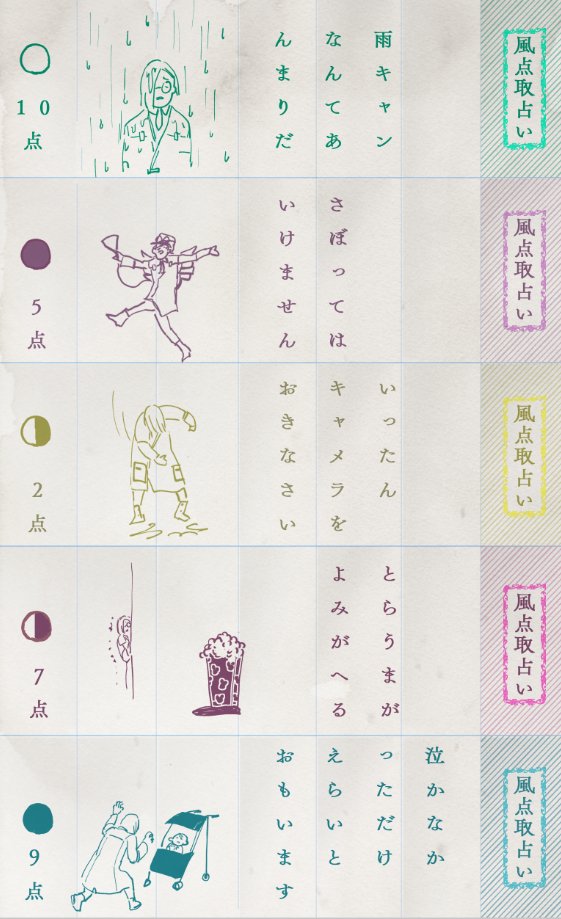 風点取占い
雨キャン
なんてあ
んまりだ
10
点
風点取占い
さぼっては
いけません
5
点
風点取占い
いったん
キャメラを
おきなさい
2
点
風点取占い
とらうまが
よみがへる
7
点
風点取占い
泣かなか
っただけ
えらいと
おもいます
9
点